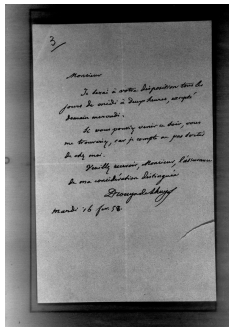 3
Monsieur
Je serai à votre disposition tous les
jours de midi à deux heures, excepté
demain mercredi.
Si vous pouviez venir ce soir, vous
me trouveriez, car je compte ne pas sortir
de chez moi.
Veuillez recevoir, Monsieur, l'assurance
de ma considération distinguée
Drouyn de Lhuys
mardi 16